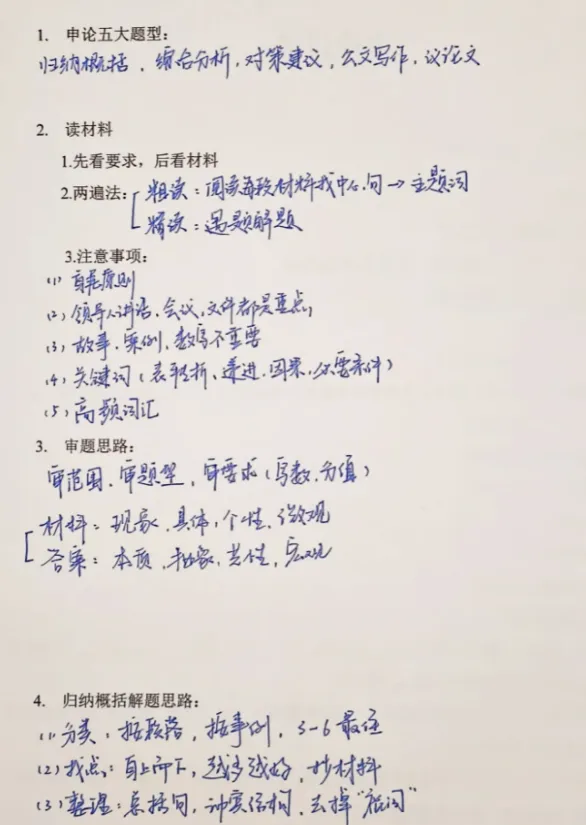 1. 申论五大题型：
归纳概括、综合分析，对策建议，公文写作，议论文
2. 读材料
1.先看要求，后看材料
2.两遍法：
粗读：阅读每段材料找中心句→主题词
精读：遇题解题
3.注意事项：
(1) 首尾原则
(2) 领导人讲话、会议、文件都是重点
(3) 故事、案例、数字不重要
(4) 关键词（表转折、递进、因果、必要条件）
(5) 高频词汇
3. 审题思路：
审范围、审题型，审要求（字数、分值）
材料：现象、具体，个性，微观
答案：本质、抽象、共性，宏观
4. 归纳概括解题思路：
(1) 分类：按段落，按事例，3-6最佳
(2) 找点：自上而下，越多越好，抄材料
(3) 整理：总括句，结构，去掉“”